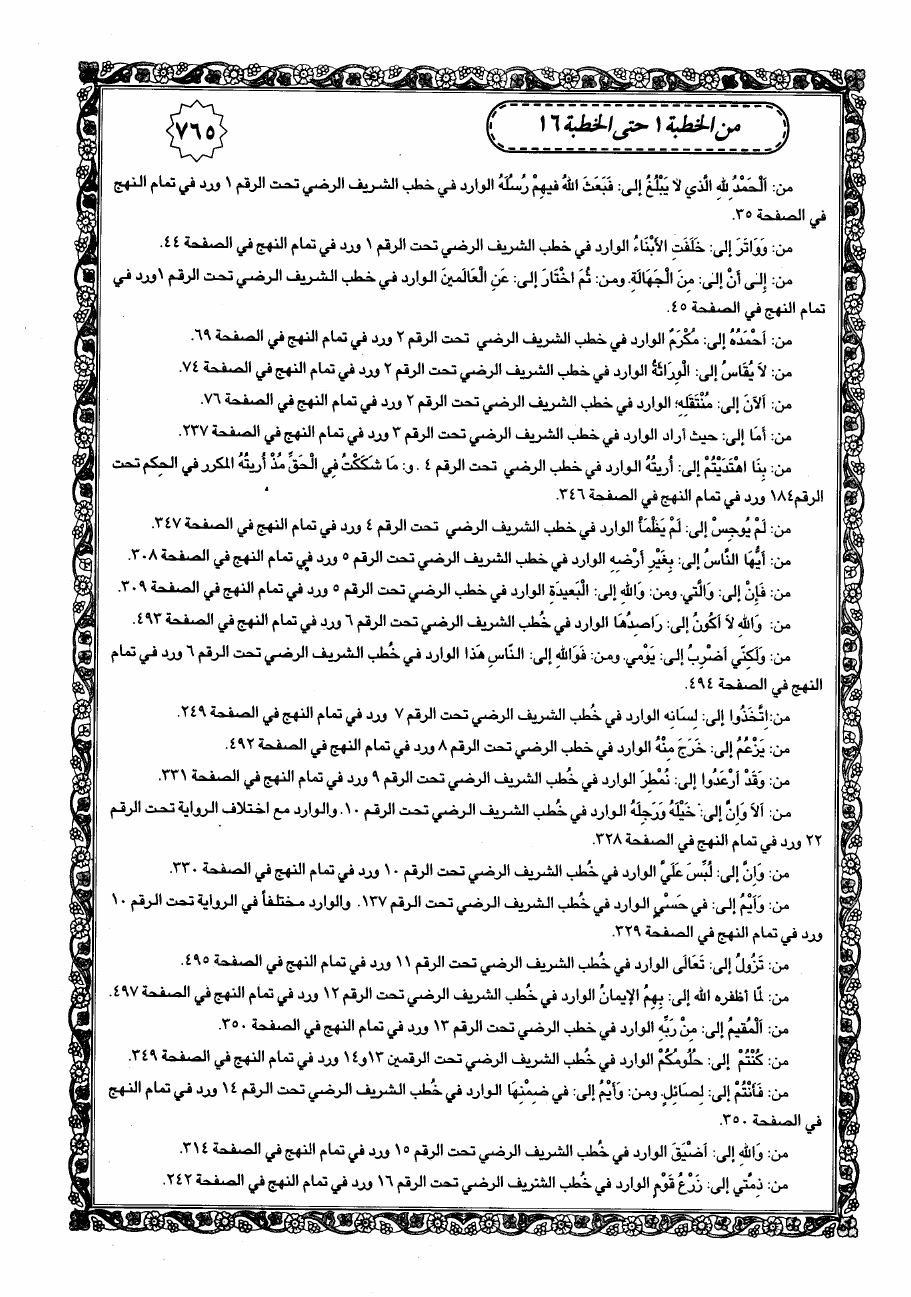 ٧٦٥
من الخطبة ١ حتى الخطبة ١٦
من: اَلْحَمْدُ لِلهِ الَّذي لاَ يَبْلُغُ إلى: فَبَعَثَ اللهُ فيهِمْ رُسُلَهُ الوارد في خطب الشريف الرضي تحت الرقم ١ ورد في تمام النهج
في الصفحة ٣٥.
من: وَوَاتَرَ إلى: خَلَفَتِ الأَبْنَاءُ الوارد في خطب الشريف الرضي تحت الرقم ١ ورد في تمام النهج في الصفحة ٤٤.
من: إِلى أَنْ إلى: مِنَ الْجَهَالَةِ. ومن: ثُمَّ اخْتَارَ إلى: عَنِ الْعَالَمينَ الوارد في خطب الشريف الرضي تحت الرقم ١ورد في
تمام النهج في الصفحة ٤٥.
من: أَحْمَدُهُ إلى: مُكْرَمٌ الوارد في خطب الشريف الرضي تحت الرقم ٢ ورد في تمام النهج في الصفحة ٦٩.
من: لاَ يُقَاسُ إلى: الْوِرَاثَةُ الوارد في خطب الشريف الرضي تحت الرقم ٢ ورد في تمام النهج في الصفحة ٧٤.
من: اَلآنَ إلى: مُنْتَقَلِهِ؛ الوارد في خطب الشريف الرضي تحت الرقم ٢ ورد في تمام النهج في الصفحة ٧٦.
من: أَمَا إلى: حيث أراد الوارد في خطب الشريف الرضي تحت الرقم ٣ ورد في تمام النهج في الصفحة ٢٣٧.
من: بِنَا اهْتَدَيْتُمْ إلى: أُريتُهُ الوارد في خطب الشريف الرضي تحت الرقم ٤. و: مَا شَكَكْتُ فِي الْحَقِّ مُذْ أُريتُهُ المكرر في الحكم تحت
الرقم١٨٤ ورد في تمام النهج في الصفحة ٣٤٦.
من: لَمْ يُوجِسْ إلى: لَمْ يَظْمَأْ الوارد في خطب الشريف الرضي تحت الرقم ٤ ورد في تمام النهج في الصفحة ٣٤٧.
من: أَيُّهَا النَّاسُ إلى: بِغَيْرِ أَرْضِهِ الوارد في خطب الشريف الرضي تحت الرقم ٥ ورد في تمام النهج في الصفحة ٣٠٨.
من: فَإِنْ إلى: وَالَّتي. ومن: وَاللهِ إلى: الْبَعيدَةِ الوارد في خطب الشريف الرضي تحت الرقم ٥ ورد في تمام النهج في الصفحة ٣٠٩.
من: وَاللهِ لاَ أَكُونُ إلى: رَاصِدُهَا الوارد في خُطب الشريف الرضي تحت الرقم ٦ ورد في تمام النهج في الصفحة ٤٩٣.
من: وَلَكِنّي أَضْرِبُ إلى: يَوْمي. ومن: فَوَاللهِ إلى: النَّاسِ هَذا الوارد في خُطب الشريف الرضي تحت الرقم ٦ ورد في تمام
النهج في الصفحة ٤٩٤.
من:اِتَّخَذُوا إلى: لِسَانِهِ الوارد في خُطب الشريف الرضي تحت الرقم ٧ ورد في تمام النهج في الصفحة ٢٤٩.
من: يَزْعُمُ إلى: خَرَجَ مِنْهُ الوارد في خطب الرضي تحت الرقم ٨ ورد في تمام النهج في الصفحة ٤٩٢.
من: وَقَدْ أَرْعَدُوا إلى: نُمْطِرَ الوارد في خُطب الشريف الرضي تحت الرقم ٩ ورد في تمام النهج في الصفحة ٣٣١.
من: اَلاَ وَإِنَّ إلى: خَيْلَهُ وَرَجِلَهُ الوارد في خُطب الشريف الرضي تحت الرقم ١٠. والوارد مع اختلاف الرواية تحت الرقم
٢٢ ورد في تمام النهج في الصفحة ٣٢٨.
من: وَإِنَّ إلى: لُبِّسَ عَلَيَّ الوارد في خُطب الشريف الرضي تحت الرقم ١٠ ورد في تمام النهج في الصفحة ٣٣٠.
من: وَأَيْمُ إلى: في حَسْيٍ الوارد في خُطب الشريف الرضي تحت الرقم ١٣٧. والوارد مختلفاً في الرواية تحت الرقم ١٠
ورد في تمام النهج في الصفحة ٣٢٩.
من: تَزُولُ إلى: تَعَالَى الوارد في خُطب الشريف الرضي تحت الرقم ١١ ورد في تمام النهج في الصفحة ٤٩٥.
من: لمّا أظفره الله إلى: بِهِمُ الإيمانُ الوارد في خُطب الشريف الرضي تحت الرقم ١٢ ورد في تمام النهج في الصفحة ٤٩٧.
من: اَلْمُقيمُ إلى: مِنْ رَبِّهِ الوارد في خطب الرضي تحت الرقم ١٣ ورد في تمام النهج في الصفحة ٣٥٠.
من: كُنْتُمْ إلى: حُلُومُكُمْ الوارد في خُطب الشريف الرضي تحت الرقمين ١٣و١٤ ورد في تمام النهج في الصفحة ٣٤٩.
من: فَأَنْتُمْ إلى: لِصائِلٍ. ومن: وَأَيْمُ إلى: في ضِمْنِهَا الوارد في خُطب الشريف الرضي تحت الرقم ١٤ ورد في تمام النهج
في الصفحة ٣٥٠.
من: وَاللهِ إلى: أَضْيَقَ الوارد في خُطب الشريف الرضي تحت الرقم ١٥ ورد في تمام النهج في الصفحة ٣١٤.
من: ذِمَّتي إلى: زَرْعُ قَوْمٍ الوارد في خُطب الشريف الرضي تحت الرقم ١٦ ورد في تمام النهج في الصفحة ٢٤٢.